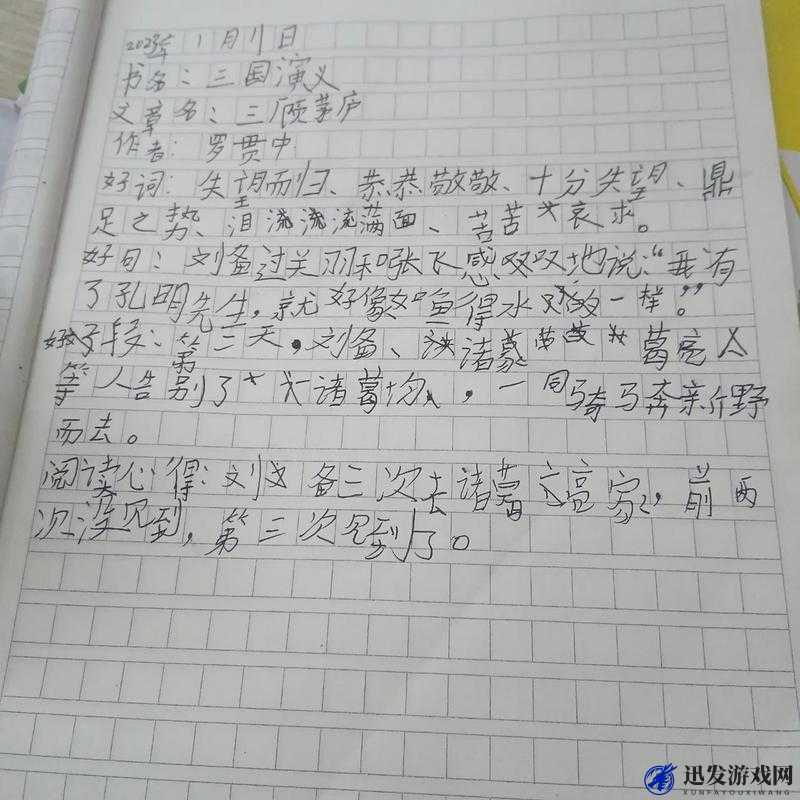 2023年1月11日
书名：三国演义
文章名：三顾茅庐
作者：罗贯中
好词：失望而归、恭恭敬敬、十分失望、鼎
足之势、泪流流流满面、苦苦哀求。
好句：刘备过关羽和张飞感叹叹地说：“我有
了孔明先生，就好像鱼得水一样。”
好段：第二天，刘备、诸葛亮
等人告别了诸葛均，一同骑马奔新野
而去。
阅读心得：刘备三次去诸葛亮家，前两
次没见到，第三次见到了。
迅发游戏网
XUNFAYOUXIWANG